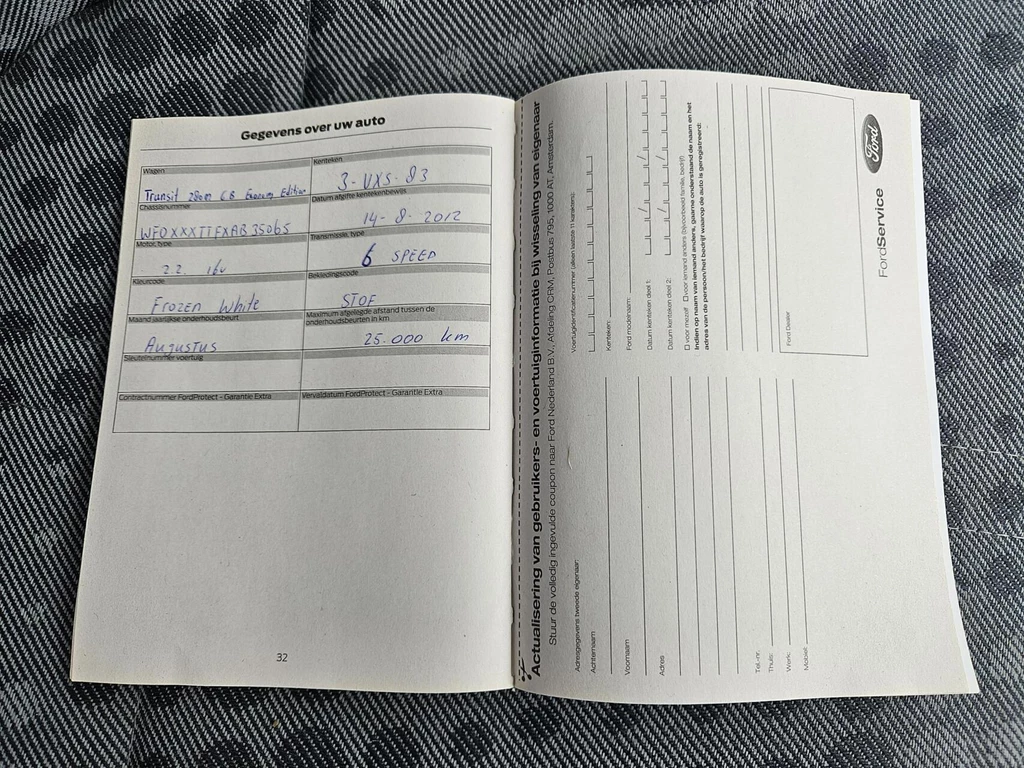 Gegevens over uw auto
Wagen
Transit 280m GB Economy Edition
Kenteken
3-VXS-83
Chassisnummer
WF0XXXTTFXAB35065
Datum afgifte kentekenbewijs
14-8-2012
Motor, type
2.2. 16v
Transmissie, type
6 SPEED
Kleurcode
Frozen White
Bekledingscode
STOF
Maand jaarlijkse onderhoudsbeurt
Augustus
Maximum afgelegde afstand tussen de
onderhoudsbeurten in km
25.000 km
Sleutelnummer voertuig
Contractnummer FordProtect - Garantie Extra
Vervaldatum FordProtect - Garantie Extra
32
Actualisering van gebruikers- en voertuiginformatie bij wisseling van eigenaar
Stuur de volledig ingevulde coupon naar Ford Nederland B.V., Afdeling CRM, Postbus 795, 1000 AT, Amsterdam.
Adresgegevens tweede eigenaar:
Achternaam
Voornaam
Adres
Tel.-nr.
Thuis:
Werk:
Mobiel:
Voertuigidentificatienummer (alleen laatste 11 karakters):
Kenteken:
Ford modelnaam:
Datum kenteken deel 1:
Datum kenteken deel 2:
voor mezelf voor iemand anders (bijvoorbeeld familie, bedrijf)
Indien op naam van iemand anders, gaarne onderstaand de naam en het
adres van de persoon/het bedrijf waarop de auto is geregistreerd:
Ford Dealer
FordService
Ford